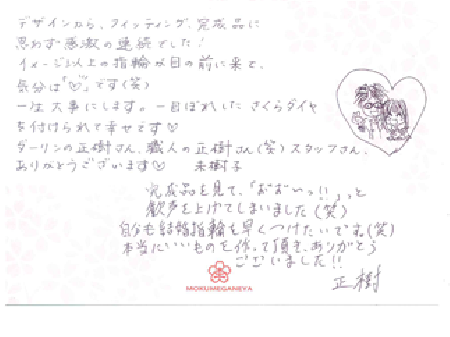 デザインから、フィッティング、完成品に
思わず感激の連続でした!
イメージ以上の指輪が目の前に来て、
気分は「♡」です(笑)
一生大事にします。一目ぼれした さくらダイヤ
を付けられて幸せです♡
ダーリンの正樹さん、職人の正樹さん(笑)スタッフさん、
ありがとうございます♡ 未樹子
完成品を見て、「おおいっ!!」と
歓声を上げてしまいました(笑)
自分も結婚指輪を早くつけたいです(笑)
本当にいいものを作って頂き、ありがとう
ございました!!
正樹
MOKUMEGANEYA